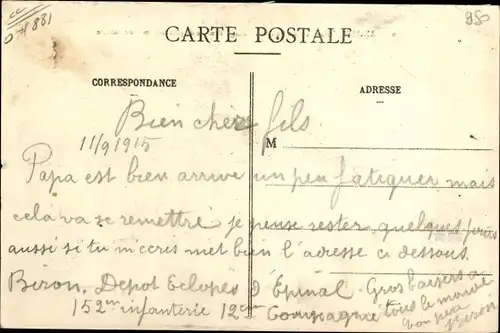 071831
950
CARTE POSTALE
CORRESPONDANCE
ADRESSE
M
Bien cher fils
11/9 1915
Papa est bien arrivé un peu fatiguer mais
cela va se remettre je pense rester quelques jours
aussi si tu m'ecris met bien l'adresse ci dessous.
Biron. Depot Eclopés D'Epinal
152me infanterie 12e Compagnie
Gros baisers a
tous le monde
ton papa
Biron